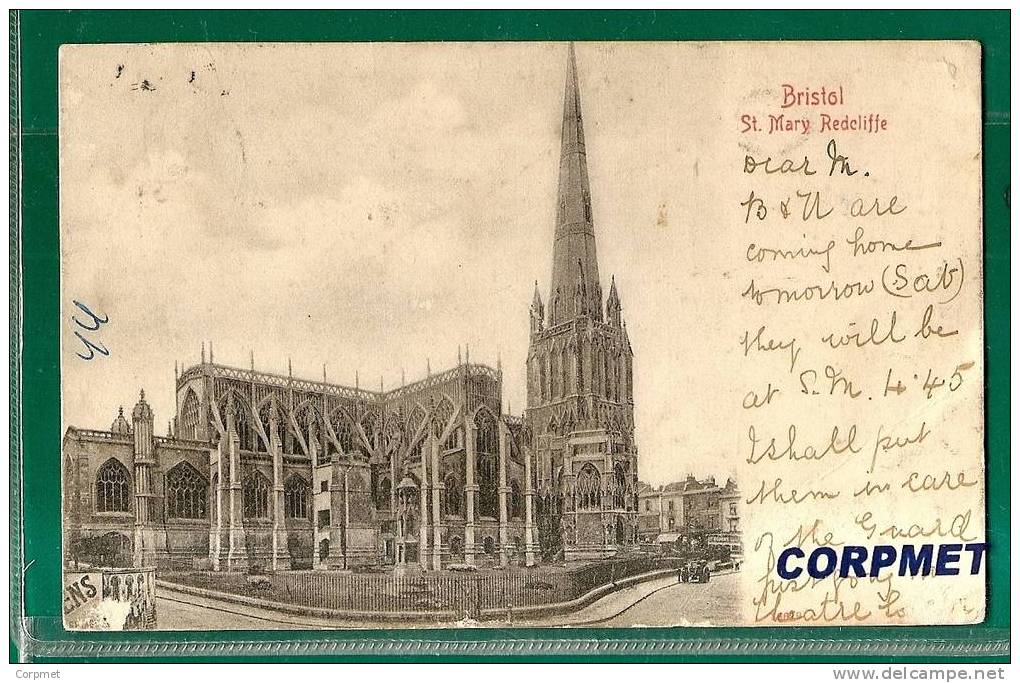 Bristol
St. Mary Redcliffe
Dear M.
B & N are
coming home
tomorrow (Sat)
they will be
at S.M. 4.45
I shall put
them in care
of the Guard
CORPMET
just going
theatre
44
ENS
Corpmet
www.delcampe.net